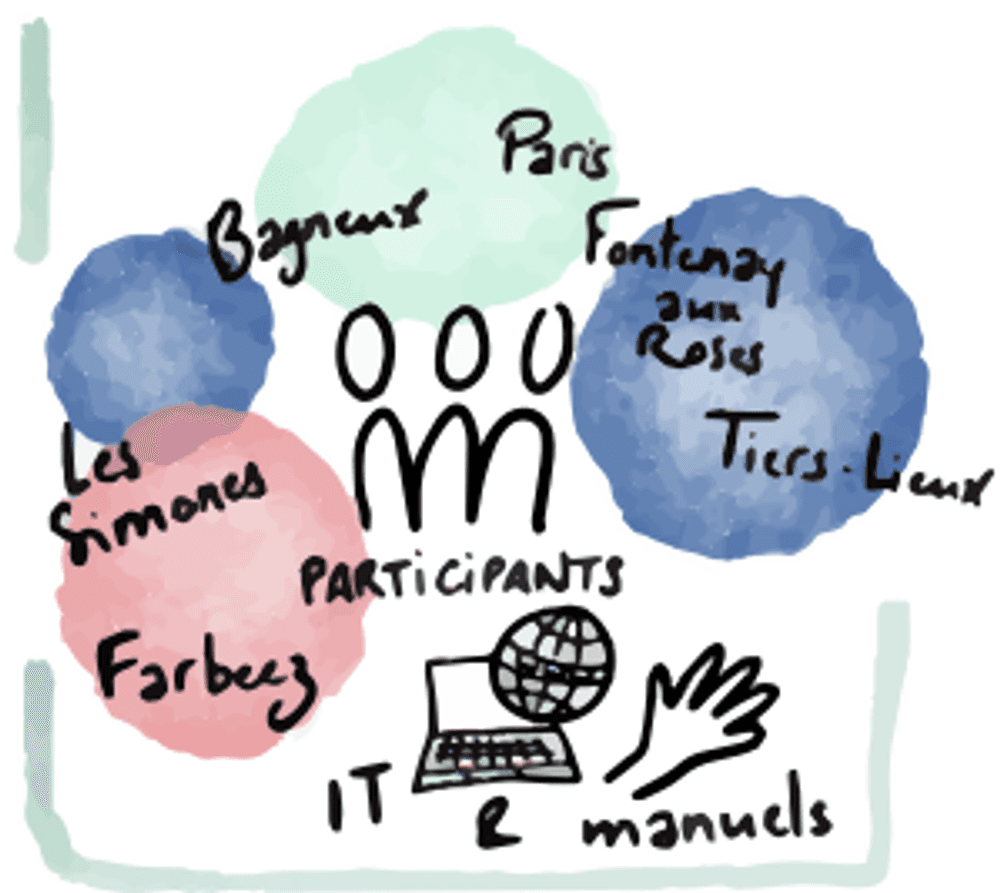 Paris
Bagneux
Fontenay
aux
Roses
Tiers-Lieux
Les
Simones
PARTiCiPANTS
Farbeez
IT & manuels